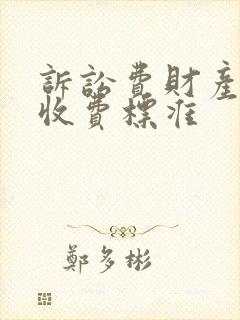 訴訟費財產
收費標准
鄭多彬